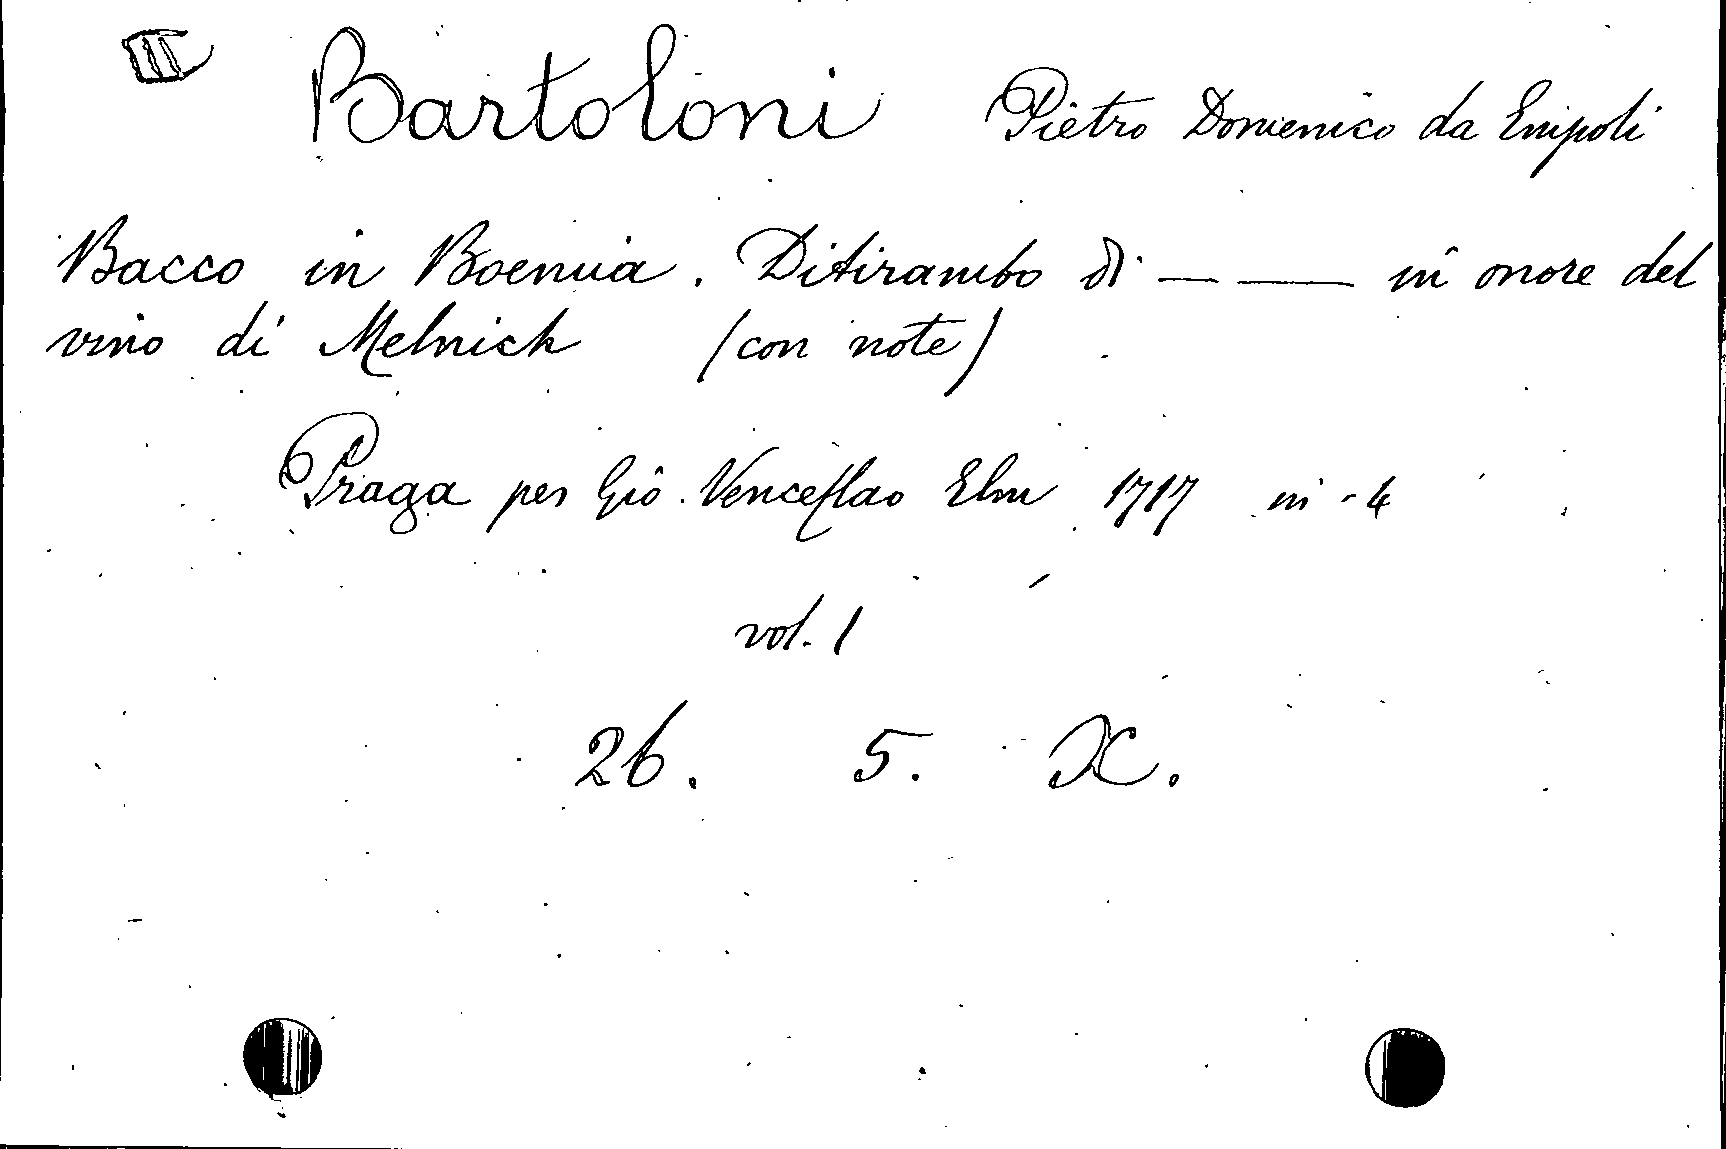 Bartoloni Pietro Domenico da Empoli
Bacco in Boemia. Ditirambo di — — in onore del
vino di Melnick (con note)
Praga per Giô. Venceslao Elm 1717 in-4
vol. 1
26. 5. X.